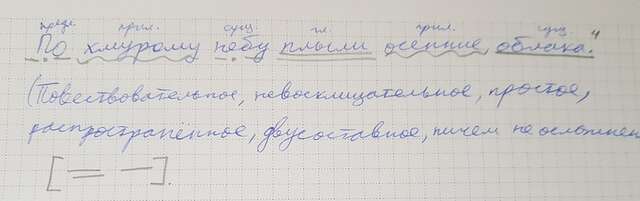 предл. прил. сущ. гл. прил. сущ.
По хмурому небу плыли осенние облака. 4
(Повествовательное, невосклицательное, простое,
распространённое, двусоставное, ничем не осложнен
[ ═ — ].